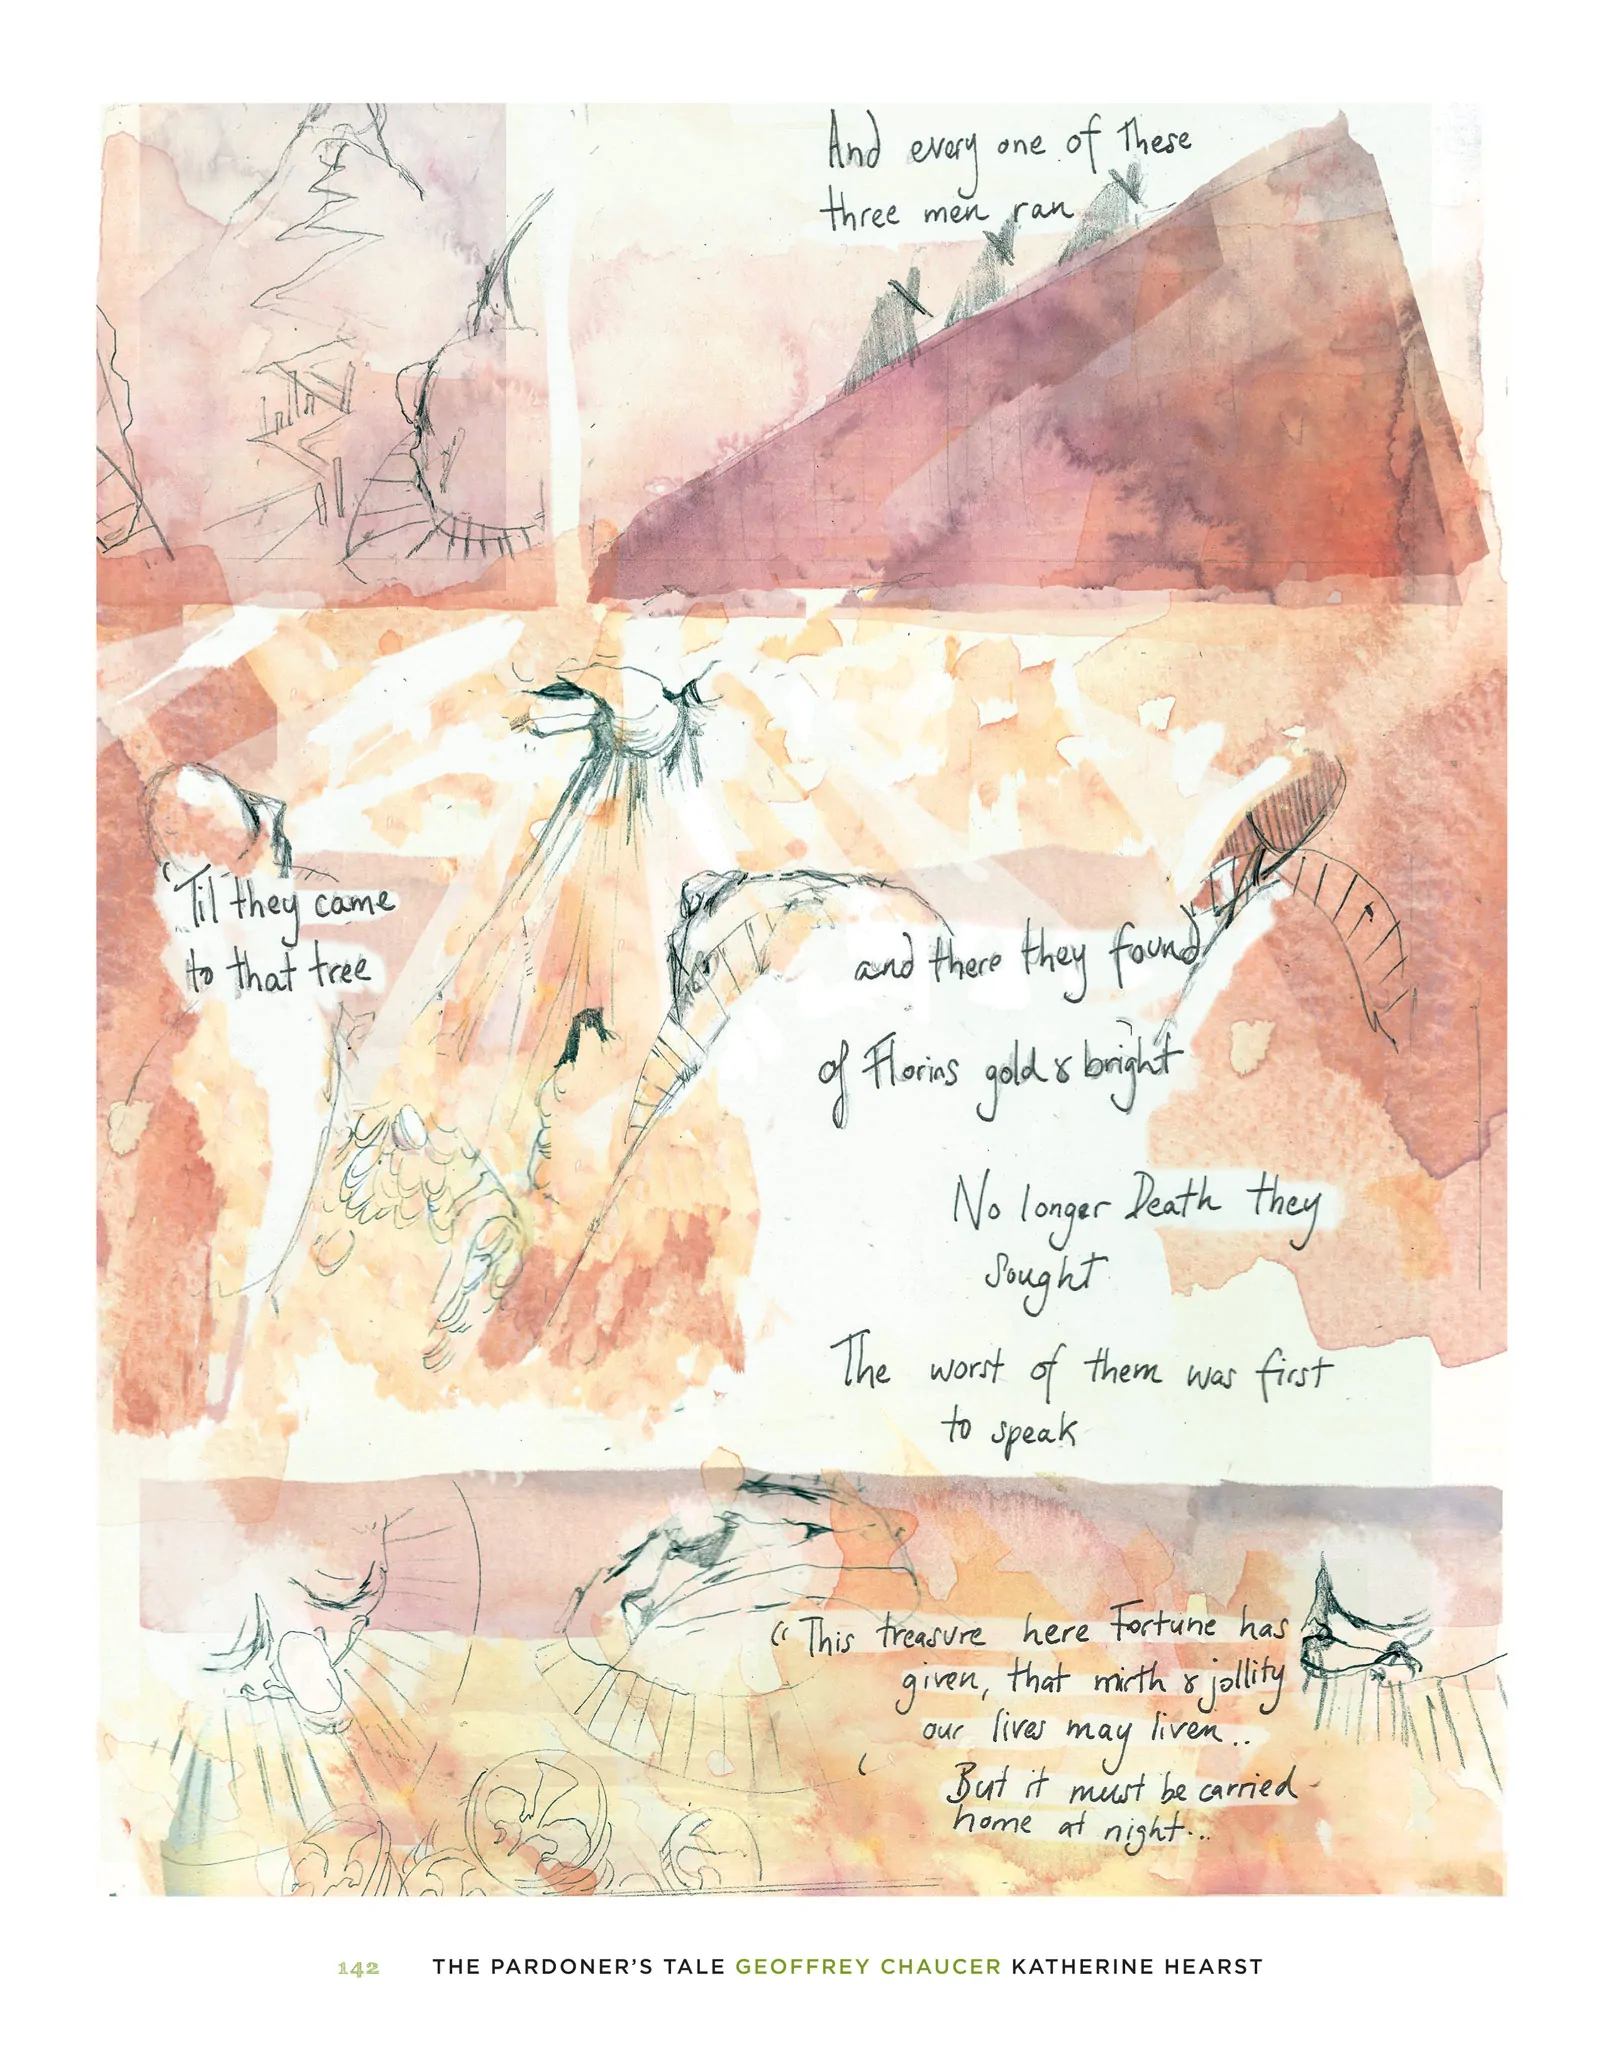 And every one of these
three men ran
'Til they came
to that tree
and there they found
of Florins gold & bright
No longer Death they
sought
The worst of them was first
to speak
"This treasure here Fortune has
given, that mirth & jollity
our lives may liven..
But it must be carried
home at night...
142 THE PARDONER'S TALE GEOFFREY CHAUCER KATHERINE HEARST